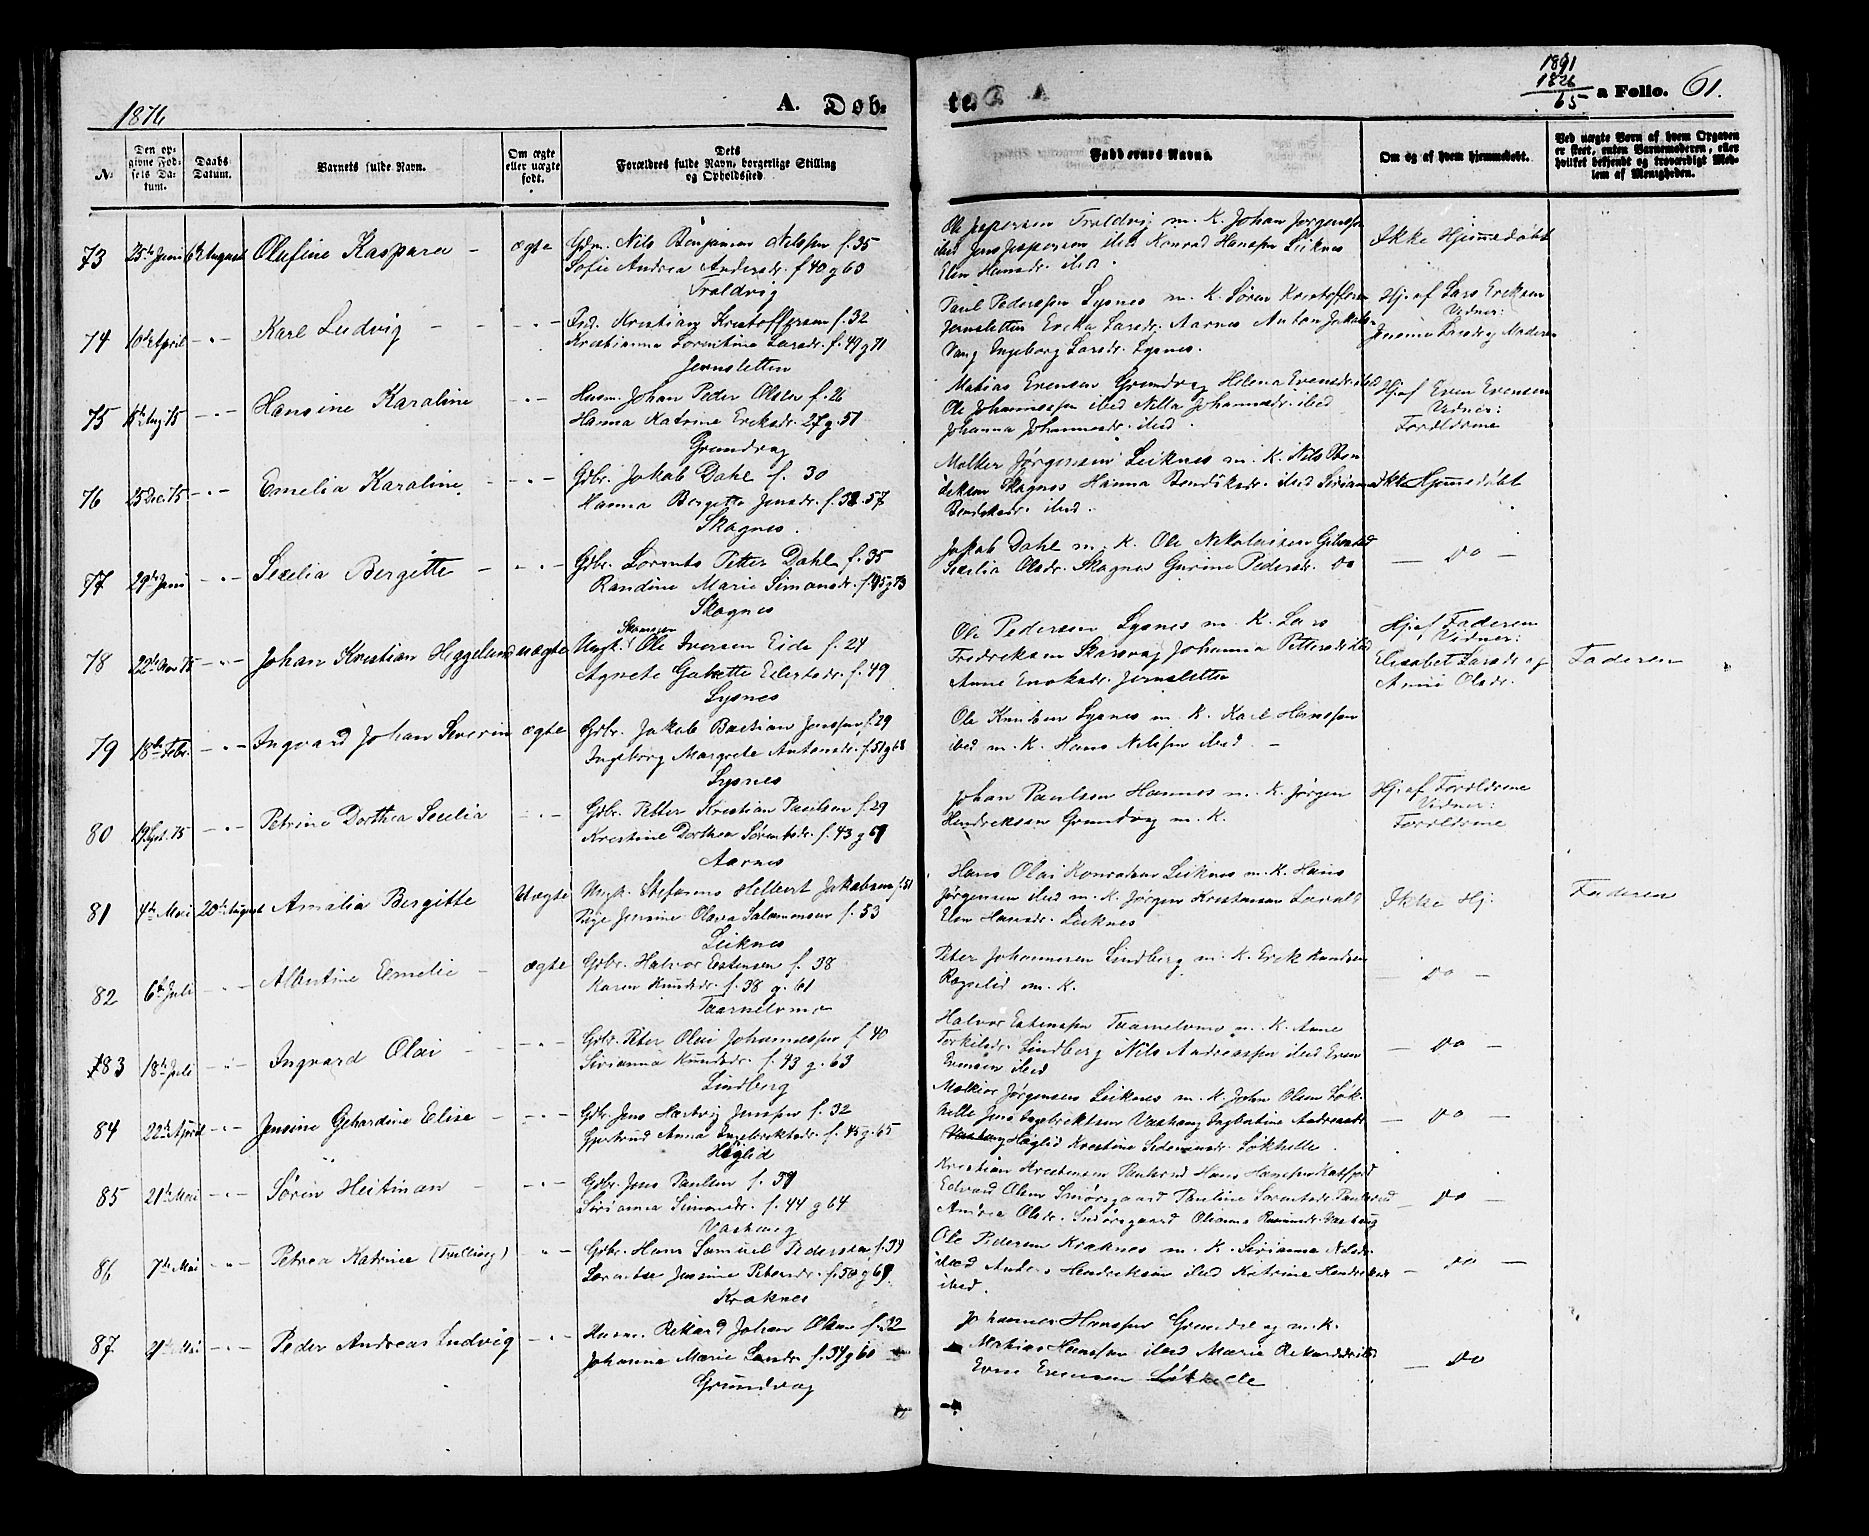 1876
A. Døb-
te.
1891
1826
65
a Folio. 61.
No.
Den op-
givne Fød-
sels Da-
tum.
Daabs
Datum.
Barnets fulde Navn.
Om ægte
eller uægte
født.
Dets
Forældres fulde Navn, borgerlige Stilling
og Opholdssted.
Faddernes Navne.
Om og af hvem hjemmedøbt.
Ved uægte Børn af hvem Opgaven
er skeet, enten Barnemoderen, eller
hvilket bekjendt og troværdigt Med-
lem af Menigheden.
73 25de Juni 6te August Olufine Kaspara - ægte Gdm. Nils Benjamin Nilssen f. 35
Sofie Andrea Andersdr. f 40 g 63
Traldvig
Ole Jespersen Traldvig m. K. Johan Jørgenssen
ibid Jens Jespersen ibid Konrad Hanssen Leiknes
Elen Hansdr. ibid.
Ikke Hjemmedøbt
74 16de April - " - Karl Ludvig - - - " - Ind. Kristian Kristoffersen f. 32
Kristianna Lorentine Larsdr. f. 49 g 71
Jernsletten
Paul Pederssen Lysnes m. K. Søren Kristoffersen
Jernsletten Ericka Larsdr. Aarnes Anton Jakobs.
Vang Ingeborg Larsdr. Lysnes.
Hj. af Lars Eriksen
Vidner:
75 Aug 75 - " - Hansine Karaline - " - Husm. Johan Peder Olsen f. 26
Hanna Katrine Eriksdr. 27 g. 51
Grundvag
Matias Evensen Grundvag Helena Evensdr. ibid
Ole Johannessen ibid Nilla Johannesdr. ibid
Johanna Johannesdr. ibid.
Hj. af Even Evensen
Vidner:
Forældrene
76 25 Dec. 75 - " - Emelia Karaline - - " - Gdbr. Jakob Dahl f. 30
Hanna Bergitte Jensdr. f. 57
Skognes.
Jørgensen Leiknes m. K. Nils Ben
diksen Skognes Hanna Bendiksdr. ibid
Bendiksdr. ibid.
Ikke Hjemmedøbt
77 29de Juni - " - Secelia Bergitte - - " - Gdbr. Lorents Petter Dahl f. 35
Randine Marie Simonsdr. f. 45 g 73
Skognes
Jakob Dahl m. K. Ole Nikolaisen
Secelia Olsdr. Skognes Gurine Pedersdr. Do
- Do -
78 22de 75 - " - Johan Kristian Heggelund uægte Ungk. Ole Iversen Eide f. 21
Agnete Eilertsdr. f. 49
Lysnes
Ole Pedersen Lysnes m. K. Lars
Fredriksen Skarsvag Johanna Pettersdr ibid
Anne Enoksdr. Jernsletten
Hj. af Faderen
Vidner:
Elisabet Larsdr og
Anne Olsdr.
Faderen
79 18de Febr. - " - Ingvard Johan Severin ægte Gdbr. Jakob Bastian Jenssen f. 29
Ingeborg Margrete Antonsdr. f. 51 g 68
Lysnes
Ole Knudsen Lysnes m. K. Karl Hanssen
ibid m. K. Hans Nilssen ibid. -
80 Sept. 75 - " - Petrine Dorthea Secelia - " - Gdbr. Petter Kristian Paulsen f. 29
Kristine Dorthea Sørensdr. f. 43 g 69
Aarnes
Johan Paulsen Hamnes m. K. Jørgen
Hendriksen Grundvag m. K.
Hj. af Forældrene
Vidner:
Forældrene
81 4de Mai 20de August Amalia Bergitte Uægte Ungk. Stefanus Jakobsen f. 51
Pige Jensine Olava Salamonsen f. 53
Leiknes
Hans Olai Konradsen Leiknes m. K. Hans
Jørgensen ibid m. K. Jørgen Kristiansen
Elen Hansdr. Leiknes
Ikke Hj.
Faderen
82 6te Juli - " - Albertine Emelie - ægte Gdbr. Halvor Estensen f. 38
Karen Knudsdr. f. 38 g. 61
Taarnelvmo
Peter Johannesen Lindberg m. K. Erik Knudsen
Rognlid m. K.
- Do -
83 18de Juli - " - Ingvard Olai - - " - Gdbr. Peter Olai Johannessen f. 40
Sirianna Knudsdr. f. 43 g. 63
Lindberg
Halvor Estenssen Taarnelvmo m. K. Anne
Torkilsdr. Lindberg Nils Andreassen ibid Even
Evensen ibid
- Do -
84 22de April - " - Jensine Gehardine Elise - - " - Gdbr. Jens Hartvig Jenssen f. 32
Gjertrud Anna Ingebriktsdr. f. 45 g. 65
Høglid
Melkior Jørgensen Leiknes m. K. John Olsen Løk-
helle Jens Ingebriktsen Vashaug Ingbertine Andreasdr.
Høglid Kristine Løkhelle.
- Do -
85 21de Mai - " - Sørin Heitman - - " - Gdbr. Jens Paulsen f. 39
Sirianna Simonsdr. f. 44 g 64
Vashaug
Kristian Kristensen Paulsrud Hans Hanssen
Edvard Olsen Smørsgaard Pauline Sørensdr. Paulsrud
Andrea Olsdr. Smørsgaard Oleanna Vashaug
- Do -
86 7de Mai - " - Petrea Katrine (Tvilling) " - Gdbr. Hans Samuel Pedersen f. 39
Jensine Petersdr. f. 50 g 69.
Kraknes
Ole Pedersen Kraknes m. K. Sirianna Nilsdr.
ibid Anders Hendriksen ibid Katrine Hendriksdr
ibid.
- Do -
87 Mai - " - Peder Andreas Ludvig - " - Husm. Rikard Johan Olsen f. 32
Johanna Marie Larsdr. f. 34 g 60
Grundvag
Johannes Hanssen Grundvag m. K.
Mathias Hanssen ibid Marie Rikardsdr ibid
Even Evensen Løkhelle
- Do